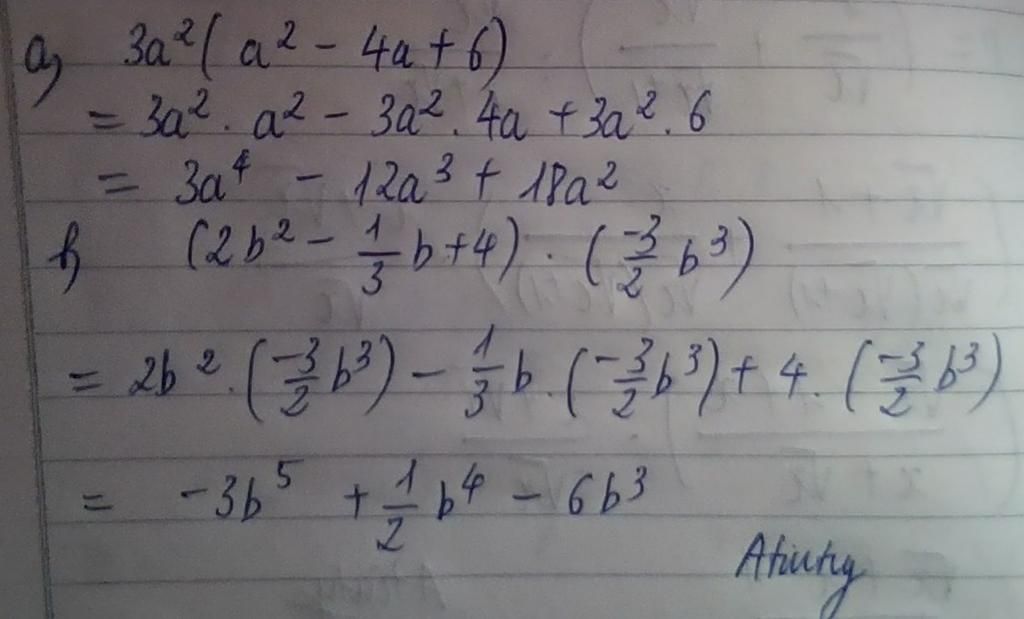 a) 3a²(a² - 4a + 6)
= 3a² . a² - 3a² . 4a + 3a² . 6
= 3a⁴ - 12a³ + 18a²
b) (2b² - 1/3 b + 4) . (-3/2 b³)
= 2b² . (-3/2 b³) - 1/3 b . (-3/2 b³) + 4 . (-3/2 b³)
= -3b⁵ + 1/2 b⁴ - 6b³